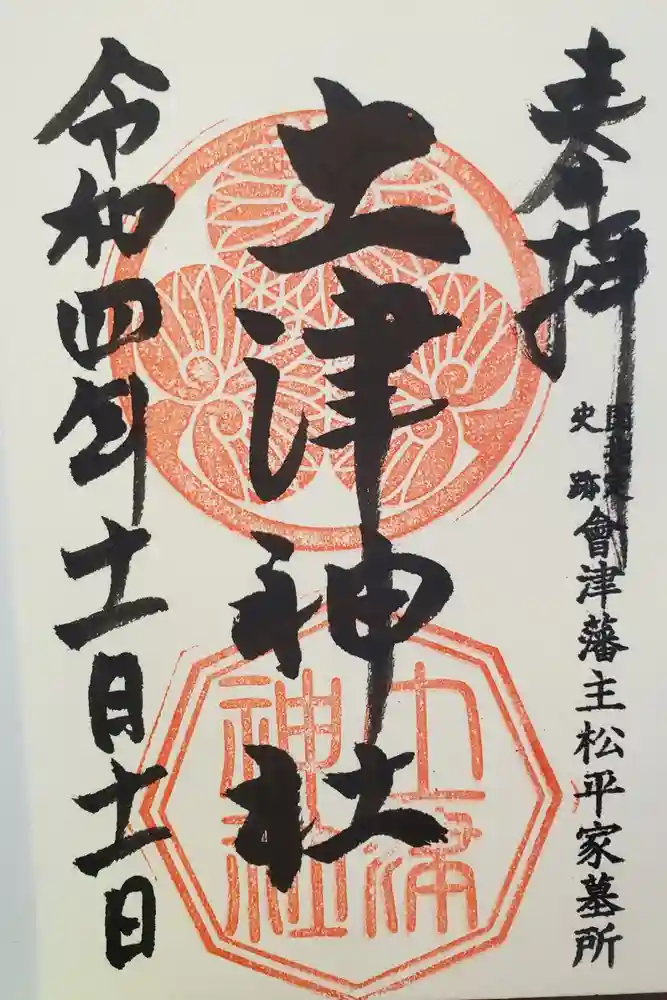 奉拝
国指定
史跡
會津藩主松平家墓所
土津神社
土津
神社
令和四年十一月十一日